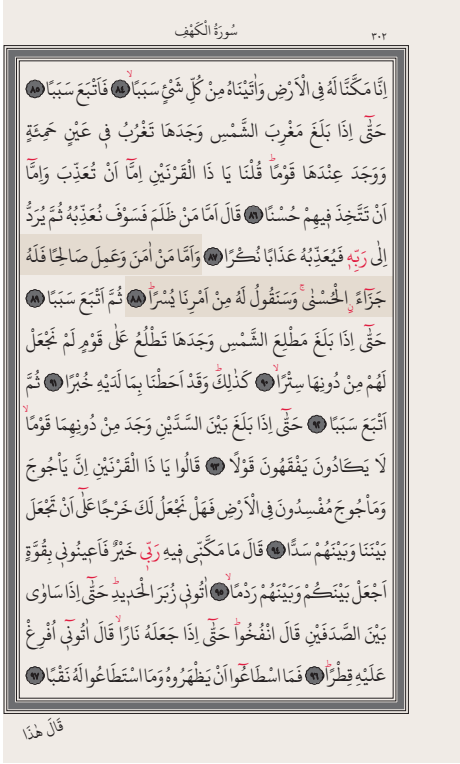 ٣٠٢
سُورَةُ الْكَهْفِ
اِنَّا مَكَّنَّا لَهُ فِي الْاَرْضِ وَاٰتَيْنَاهُ مِنْ كُلِّ شَيْءٍ سَبَبًاۙ ﴿٨٤﴾ فَاَتْبَعَ سَبَبًا ﴿٨٥﴾
حَتّٰٓى اِذَا بَلَغَ مَغْرِبَ الشَّمْسِ وَجَدَهَا تَغْرُبُ ف۪ي عَيْنٍ حَمِئَةٍ
وَوَجَدَ عِنْدَهَا قَوْمًاۜ قُلْنَا يَا ذَا الْقَرْنَيْنِ اِمَّٓا اَنْ تُعَذِّبَ وَاِمَّٓا
اَنْ تَتَّخِذَ ف۪يهِمْ حُسْنًا ﴿٨٦﴾ قَالَ اَمَّا مَنْ ظَلَمَ فَسَوْفَ نُعَذِّبُهُ ثُمَّ يُرَدُّ
اِلٰى رَبِّه۪ فَيُعَذِّبُهُ عَذَابًا نُكْرًا ﴿٨٧﴾ وَاَمَّا مَنْ اٰمَنَ وَعَمِلَ صَالِحًا فَلَهُ
جَزَٓاءًۨ الْحُسْنٰىۚ وَسَنَقُولُ لَهُ مِنْ اَمْرِنَا يُسْرًاۜ ﴿٨٨﴾ ثُمَّ اَتْبَعَ سَبَبًا ﴿٨٩﴾
حَتّٰٓى اِذَا بَلَغَ مَطْلِعَ الشَّمْسِ وَجَدَهَا تَطْلُعُ عَلٰى قَوْمٍ لَمْ نَجْعَلْ
لَهُمْ مِنْ دُونِهَا سِتْرًاۙ ﴿٩٠﴾ كَذٰلِكَۜ وَقَدْ اَحَطْنَا بِمَا لَدَيْهِ خُبْرًا ﴿٩١﴾ ثُمَّ
اَتْبَعَ سَبَبًا ﴿٩٢﴾ حَتّٰٓى اِذَا بَلَغَ بَيْنَ السَّدَّيْنِ وَجَدَ مِنْ دُونِهِمَا قَوْمًاۙ
لَا يَكَادُونَ يَفْقَهُونَ قَوْلًا ﴿٩٣﴾ قَالُوا يَا ذَا الْقَرْنَيْنِ اِنَّ يَأْجُوجَ
وَمَأْجُوجَ مُفْسِدُونَ فِي الْاَرْضِ فَهَلْ نَجْعَلُ لَكَ خَرْجًا عَلٰٓى اَنْ تَجْعَلَ
بَيْنَنَا وَبَيْنَهُمْ سَدًّا ﴿٩٤﴾ قَالَ مَا مَكَّنّ۪ي ف۪يهِ رَبّ۪ي خَيْرٌ فَاَع۪ينُون۪ي بِقُوَّةٍ
اَجْعَلْ بَيْنَكُمْ وَبَيْنَهُمْ رَدْمًاۙ ﴿٩٥﴾ اٰتُون۪ي زُبَرَ الْحَد۪يدِۜ حَتّٰٓى اِذَا سَاوٰى
بَيْنَ الصَّدَفَيْنِ قَالَ انْفُخُواۜ حَتّٰٓى اِذَا جَعَلَهُ نَارًاۙ قَالَ اٰتُون۪ٓي اُفْرِغْ
عَلَيْهِ قِطْرًاۜ ﴿٩٦﴾ فَمَا اسْطَاعُٓوا اَنْ يَظْهَرُوهُ وَمَا اسْتَطَاعُوا لَهُ نَقْبًا ﴿٩٧﴾
قَالَ هٰذَا